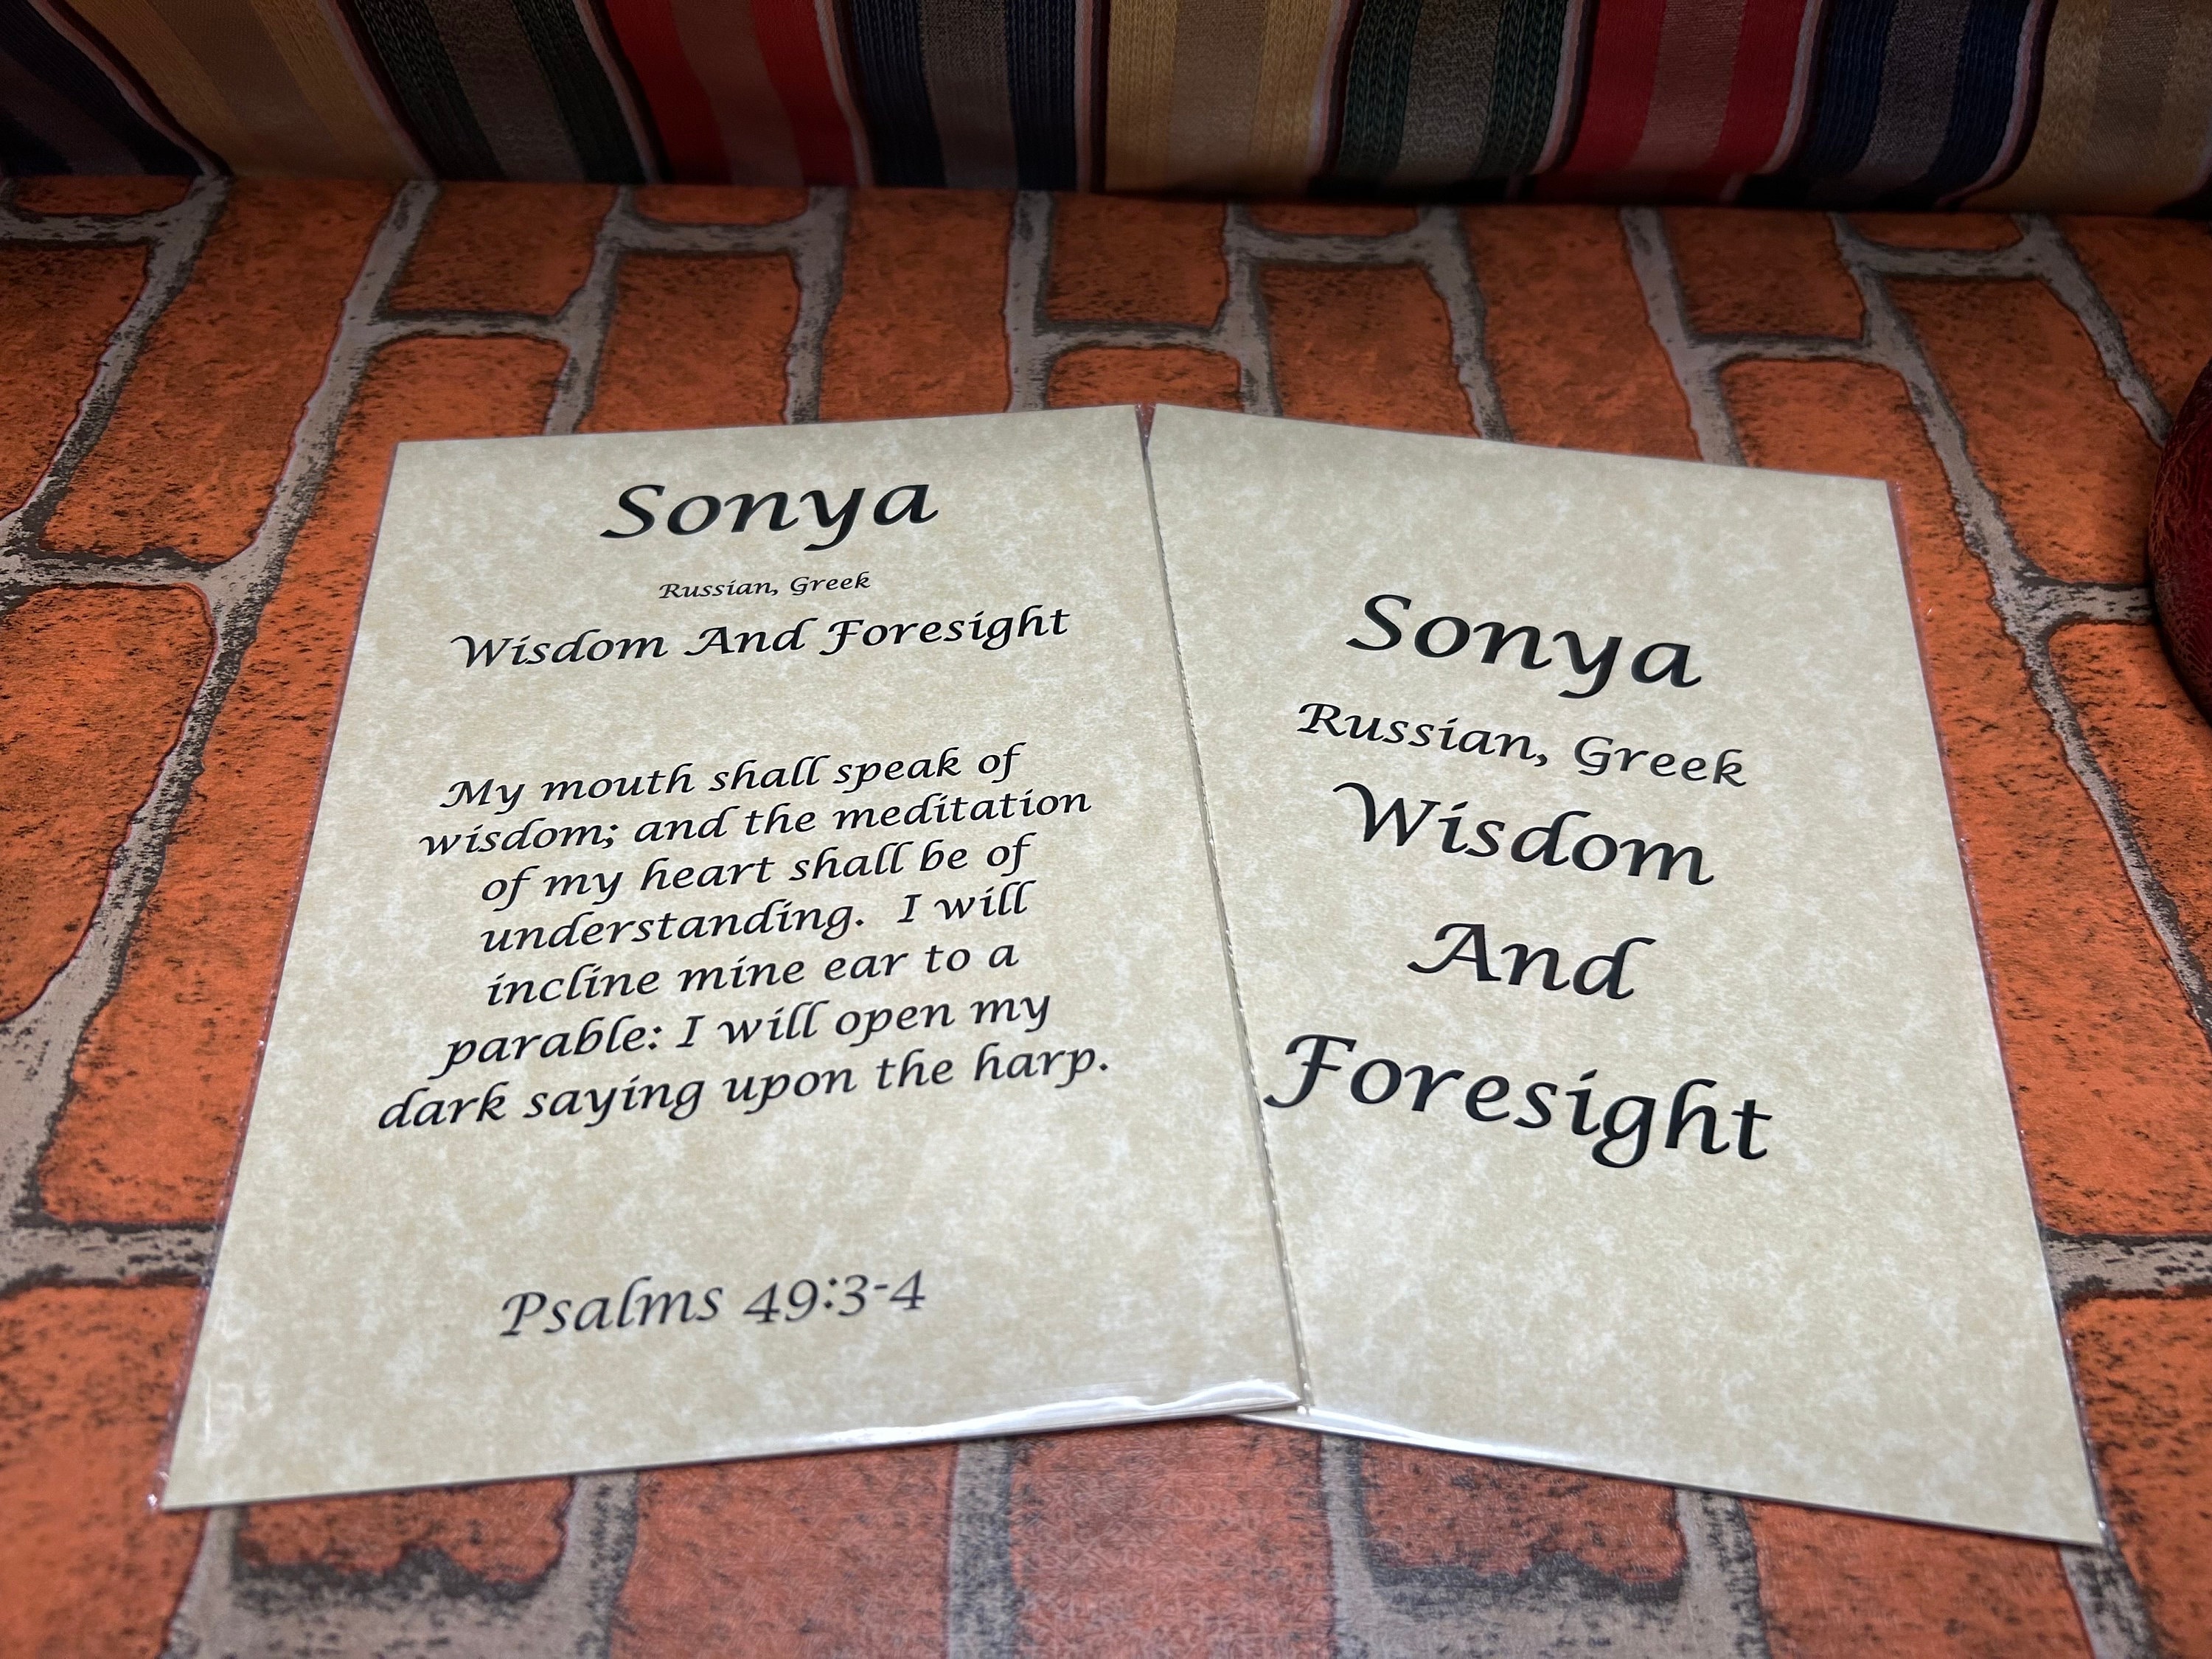 Sonya
Russian, Greek
Wisdom And Foresight
My mouth shall speak of
wisdom; and the meditation
of my heart shall be of
understanding.  I will
incline mine ear to a
parable: I will open my
dark saying upon the harp.
Psalms 49:3-4
Sonya
Russian, Greek
Wisdom
And
Foresight